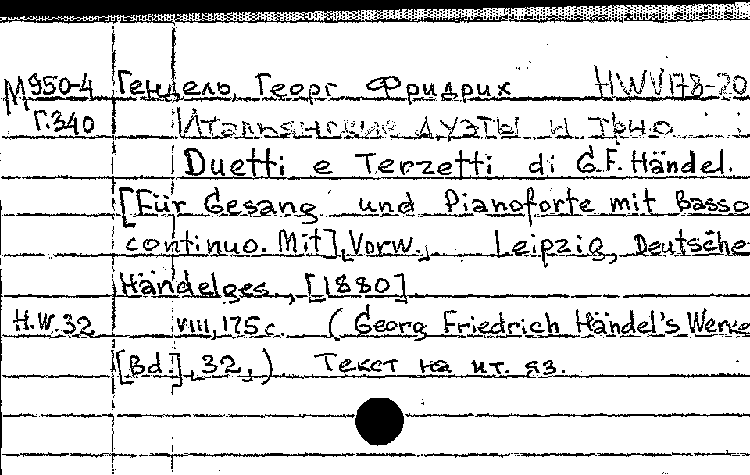 М950-4 Гендель, Георг Фридрих HWV178-20
Г.340 Итальянские дуэты и трио
Duetti e Terzetti di G.F. Händel.
[Für Gesang und Pianoforte mit Basso
continuo. Mit], [Vorw.] Leipzig, Deutsche
Händelges., [1880]
H.W.32 VIII, 175 с. (Georg Friedrich Händel's Werke
[Bd.], 32,) Текст на ит. яз.